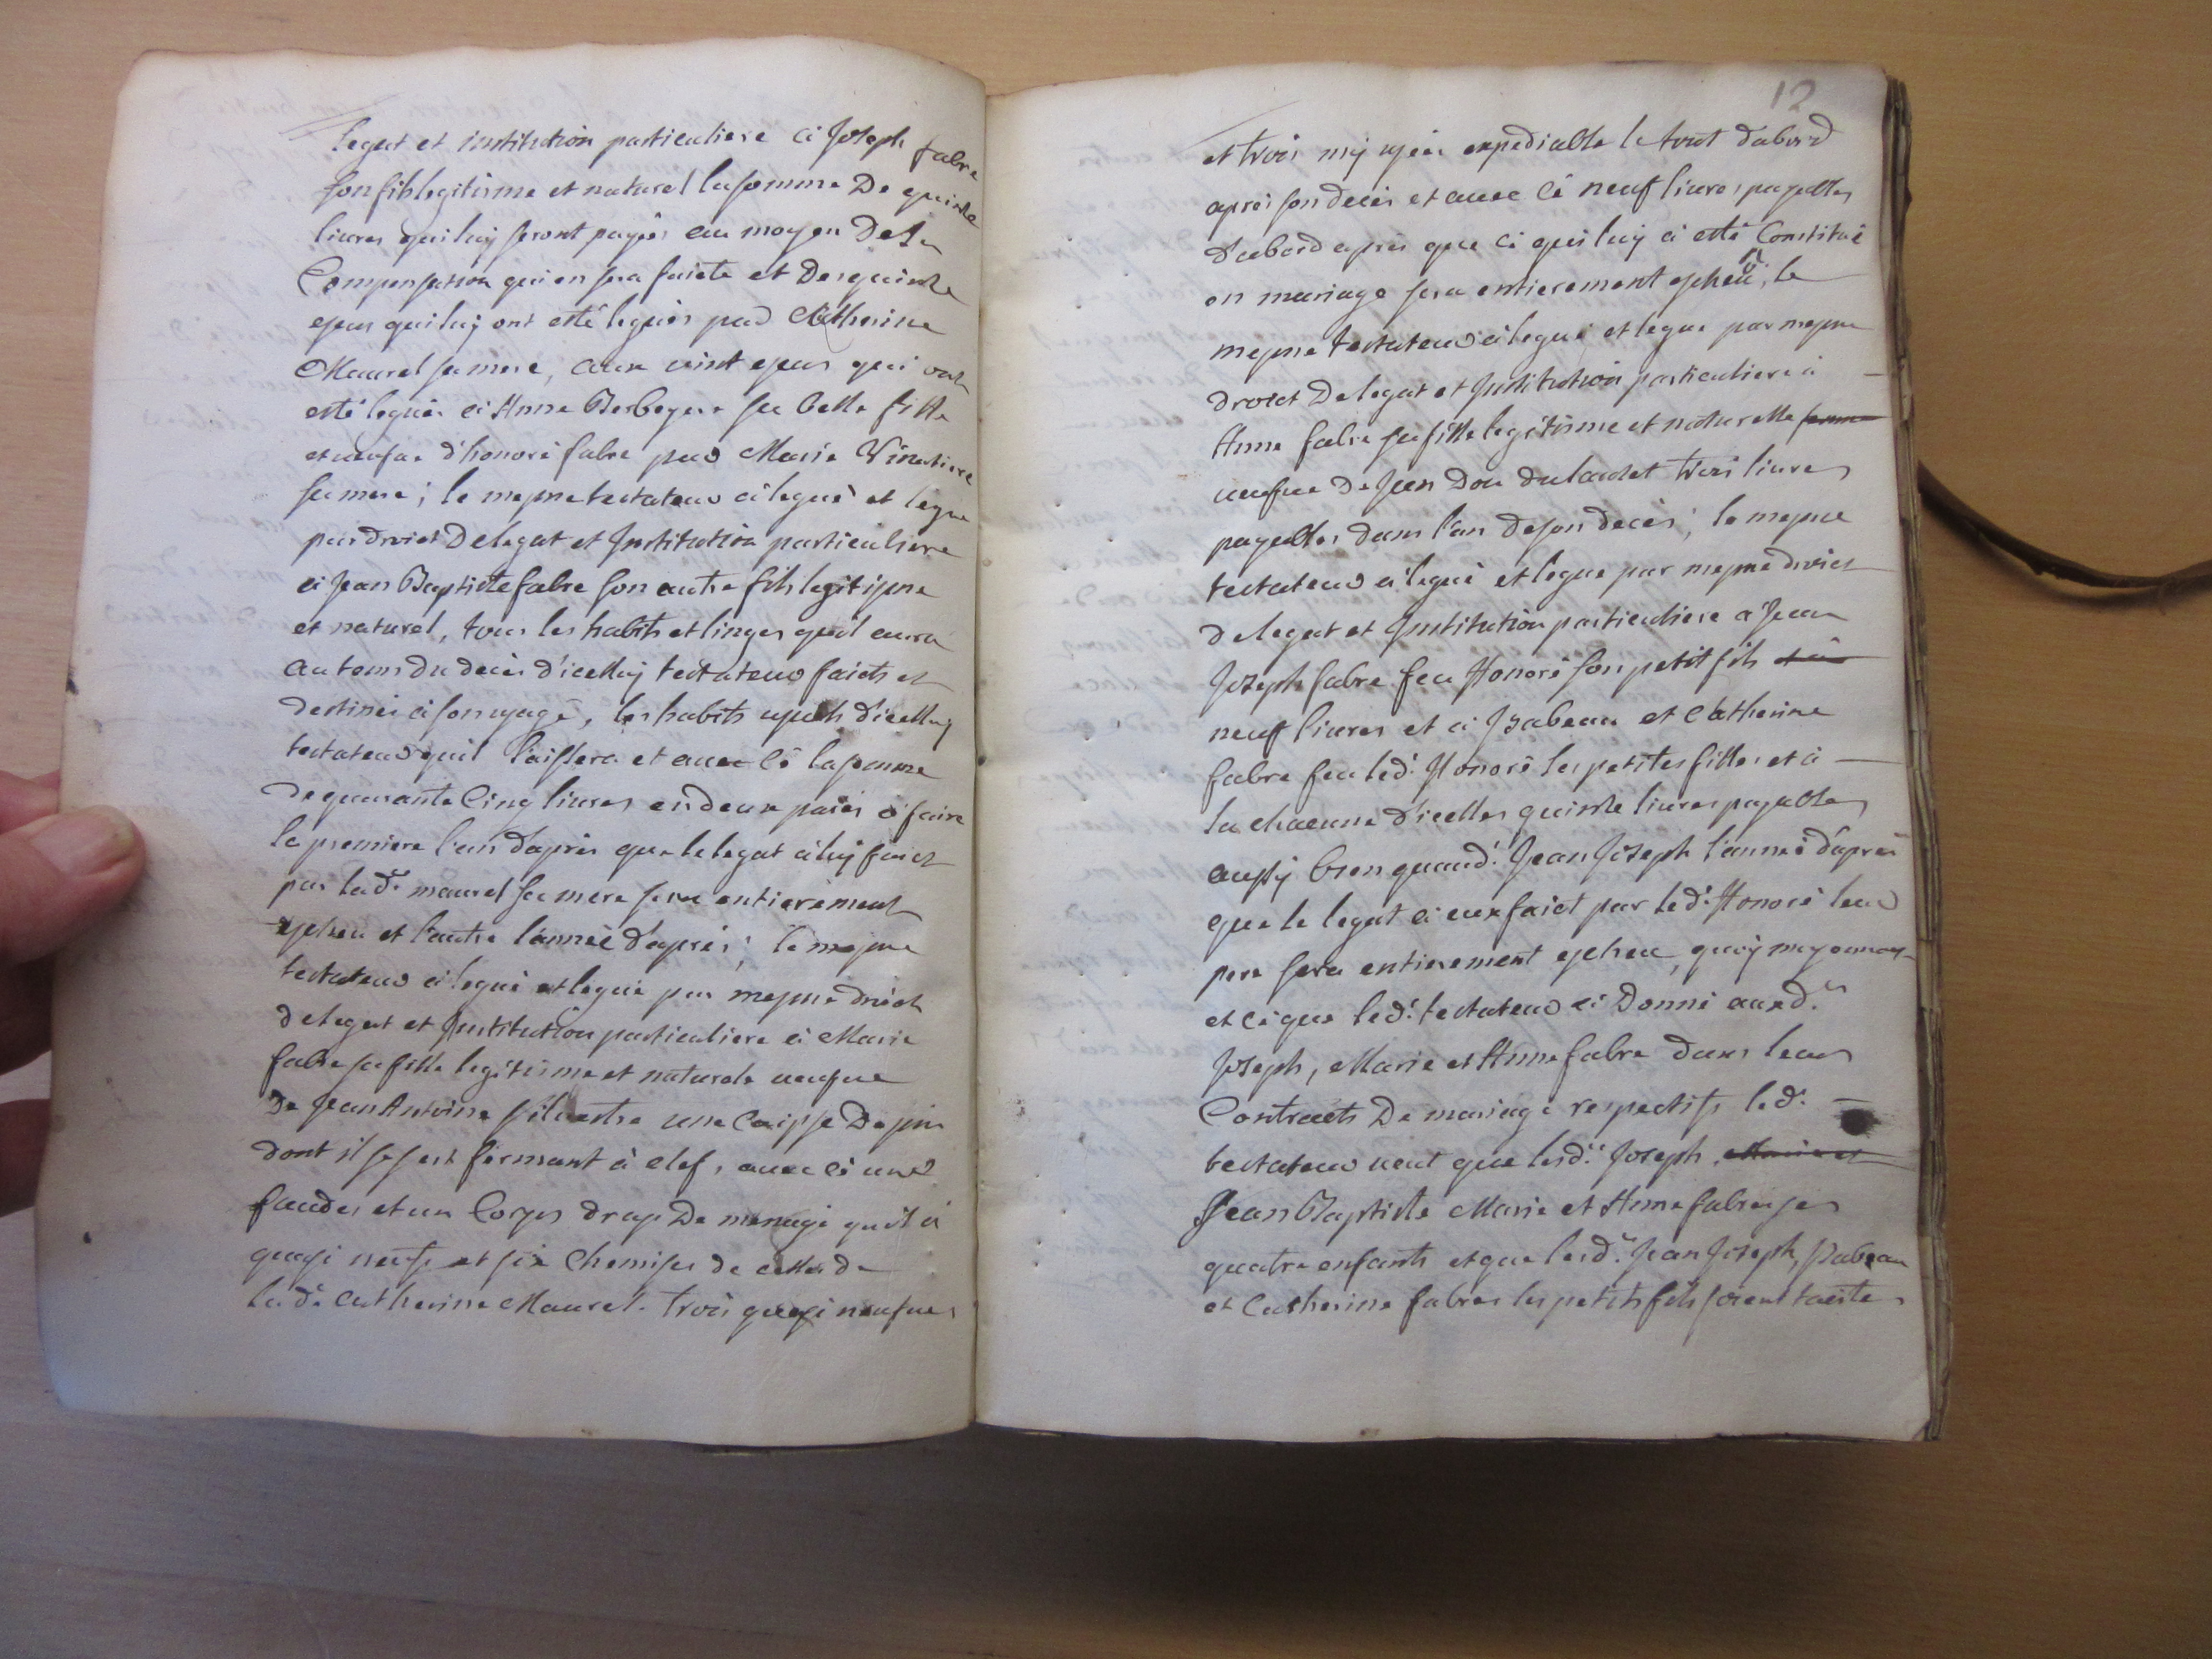 legat et institution particuliere à Joseph fabre
son fils legitisme et naturel la somme De quinse
livres qui luy seront payées au moyen De la
Compensation qui en sera faicte et Des quinse
escus qui luy ont esté legués par Catherine
Maurel sa mere, aux vint escus qui ont
esté legués à Anne Berbeyere sa belle fille
et veusve d'honoré fabre par Marie
sa mere; le mesme testateur à legué et legue
par droict De legat et Institution particuliere
à Jean Baptiste fabre son autre fils legitisme
et naturel, tous les habits et linges qu'il aura
au tems du deces d'icelluy testateur faicts et
destinés à son usage, les habits usés d'icelluy
testateur quil laissera et avec cè la somme
de quarante Cinq livres en deux paies à faire
la premiere l'an d'apres que le legat à luy faict
par lad.e maurel sa mere sera entierement
escheu et l'autre l'année d'apres; le mesme
testateur à legué et legue par mesme droict
de legat et Institution particuliere à Marie
fabre sa fille legitisme et naturele veusve
De Jean Antoine silvestre une Caisse De pin
dont il se sert fermant à clef, avec cè une
faudes et un Corps drap De menage qu'il a
quasi neufs et six Chemises de celles de
la d.e Catherine Maurel trois quasi neufves
12
et trois my usées expediable le tout d'abord
apres son deces et avec cè neuf livres payables
d'abord apres que cè qui luy a esté Constitué
en mariage sera entierement escheu, le
mesme testateur à legué et legue par mesme
droict De legat et Institution particuliere à
Anne fabre sa fille legitisme et naturelle femme
veusve De Jean Dou du laudet trois livres
payables dans l'an de son deces; le mesme
testateur à legué et legue par mesme droict
de legat et Institution particuliere a Jean
Joseph fabre feu Honoré son petit fils et à
neuf livres et à Isabeau et Catherine
fabre feu led. Honoré ses petites filles et à
la chacune d'icelles quinse livres payables
aussy bien quaud. Jean Joseph l'année d'apres
que le legat à eux faict par led. Honoré leur
pere sera entierement escheu, quoy moyennant
et cè que led. testateur à Donné auxd.es
Joseph, Marie et Anne fabre dans leurs
Contracts De mariage respectifs led.
testateur veut que lesd.es Joseph, Marie et
Jean Baptiste Marie et Anne fabre ses
quatre enfants et que lesd.es Jean Joseph, Isabeau
et Catherine fabres ses petits fils soient taiste